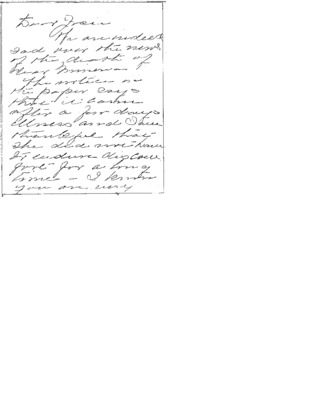 Dear Jean
We are indeed
sad over the news
of the death of
dear
The notice in
the paper says
that it came
after a few days
illness and I am
thankful that
she did not have
to endure discom
fort for a long
time - I know
you are very